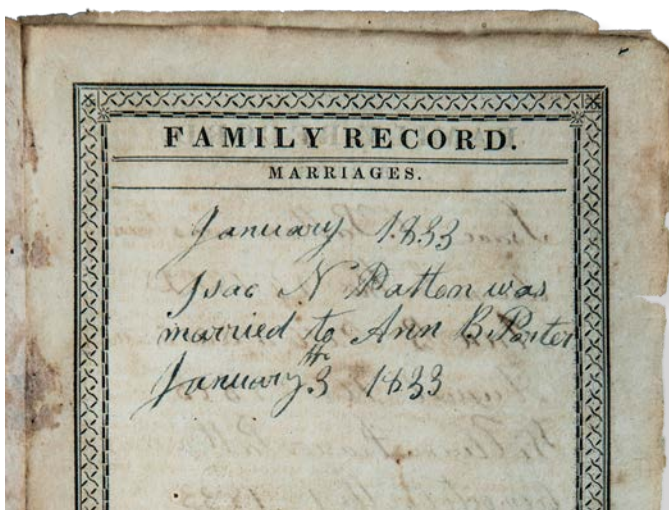 FAMILY RECORD.
MARRIAGES.
January 1833
Isac N Patton was
married to Ann B. Porter
January 3th 1833